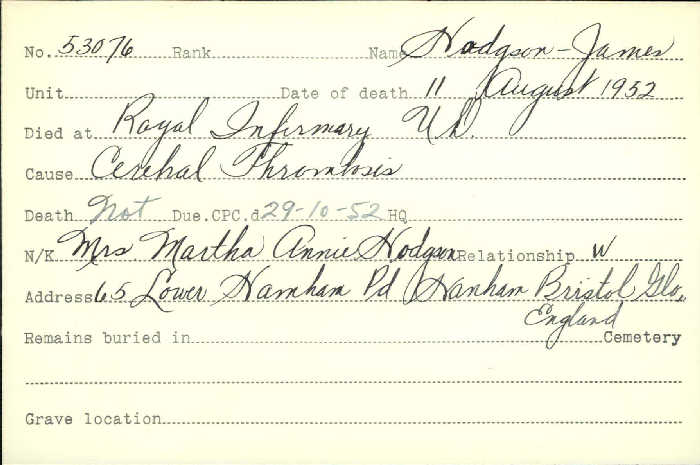 No. 53076 Rank Name Hodgson - James
Unit Date of death 11 August 1952
Died at Royal Infirmary U.K.
Cause Cerebral Thrombosis
Death Not Due. CPC.d 29-10-52 HQ
N/K Mrs Martha Annie Hodgson Relationship W
Address 65 Lower Hamham Rd Hanham Bristol Glo.,
England
Remains buried in Cemetery
Grave location